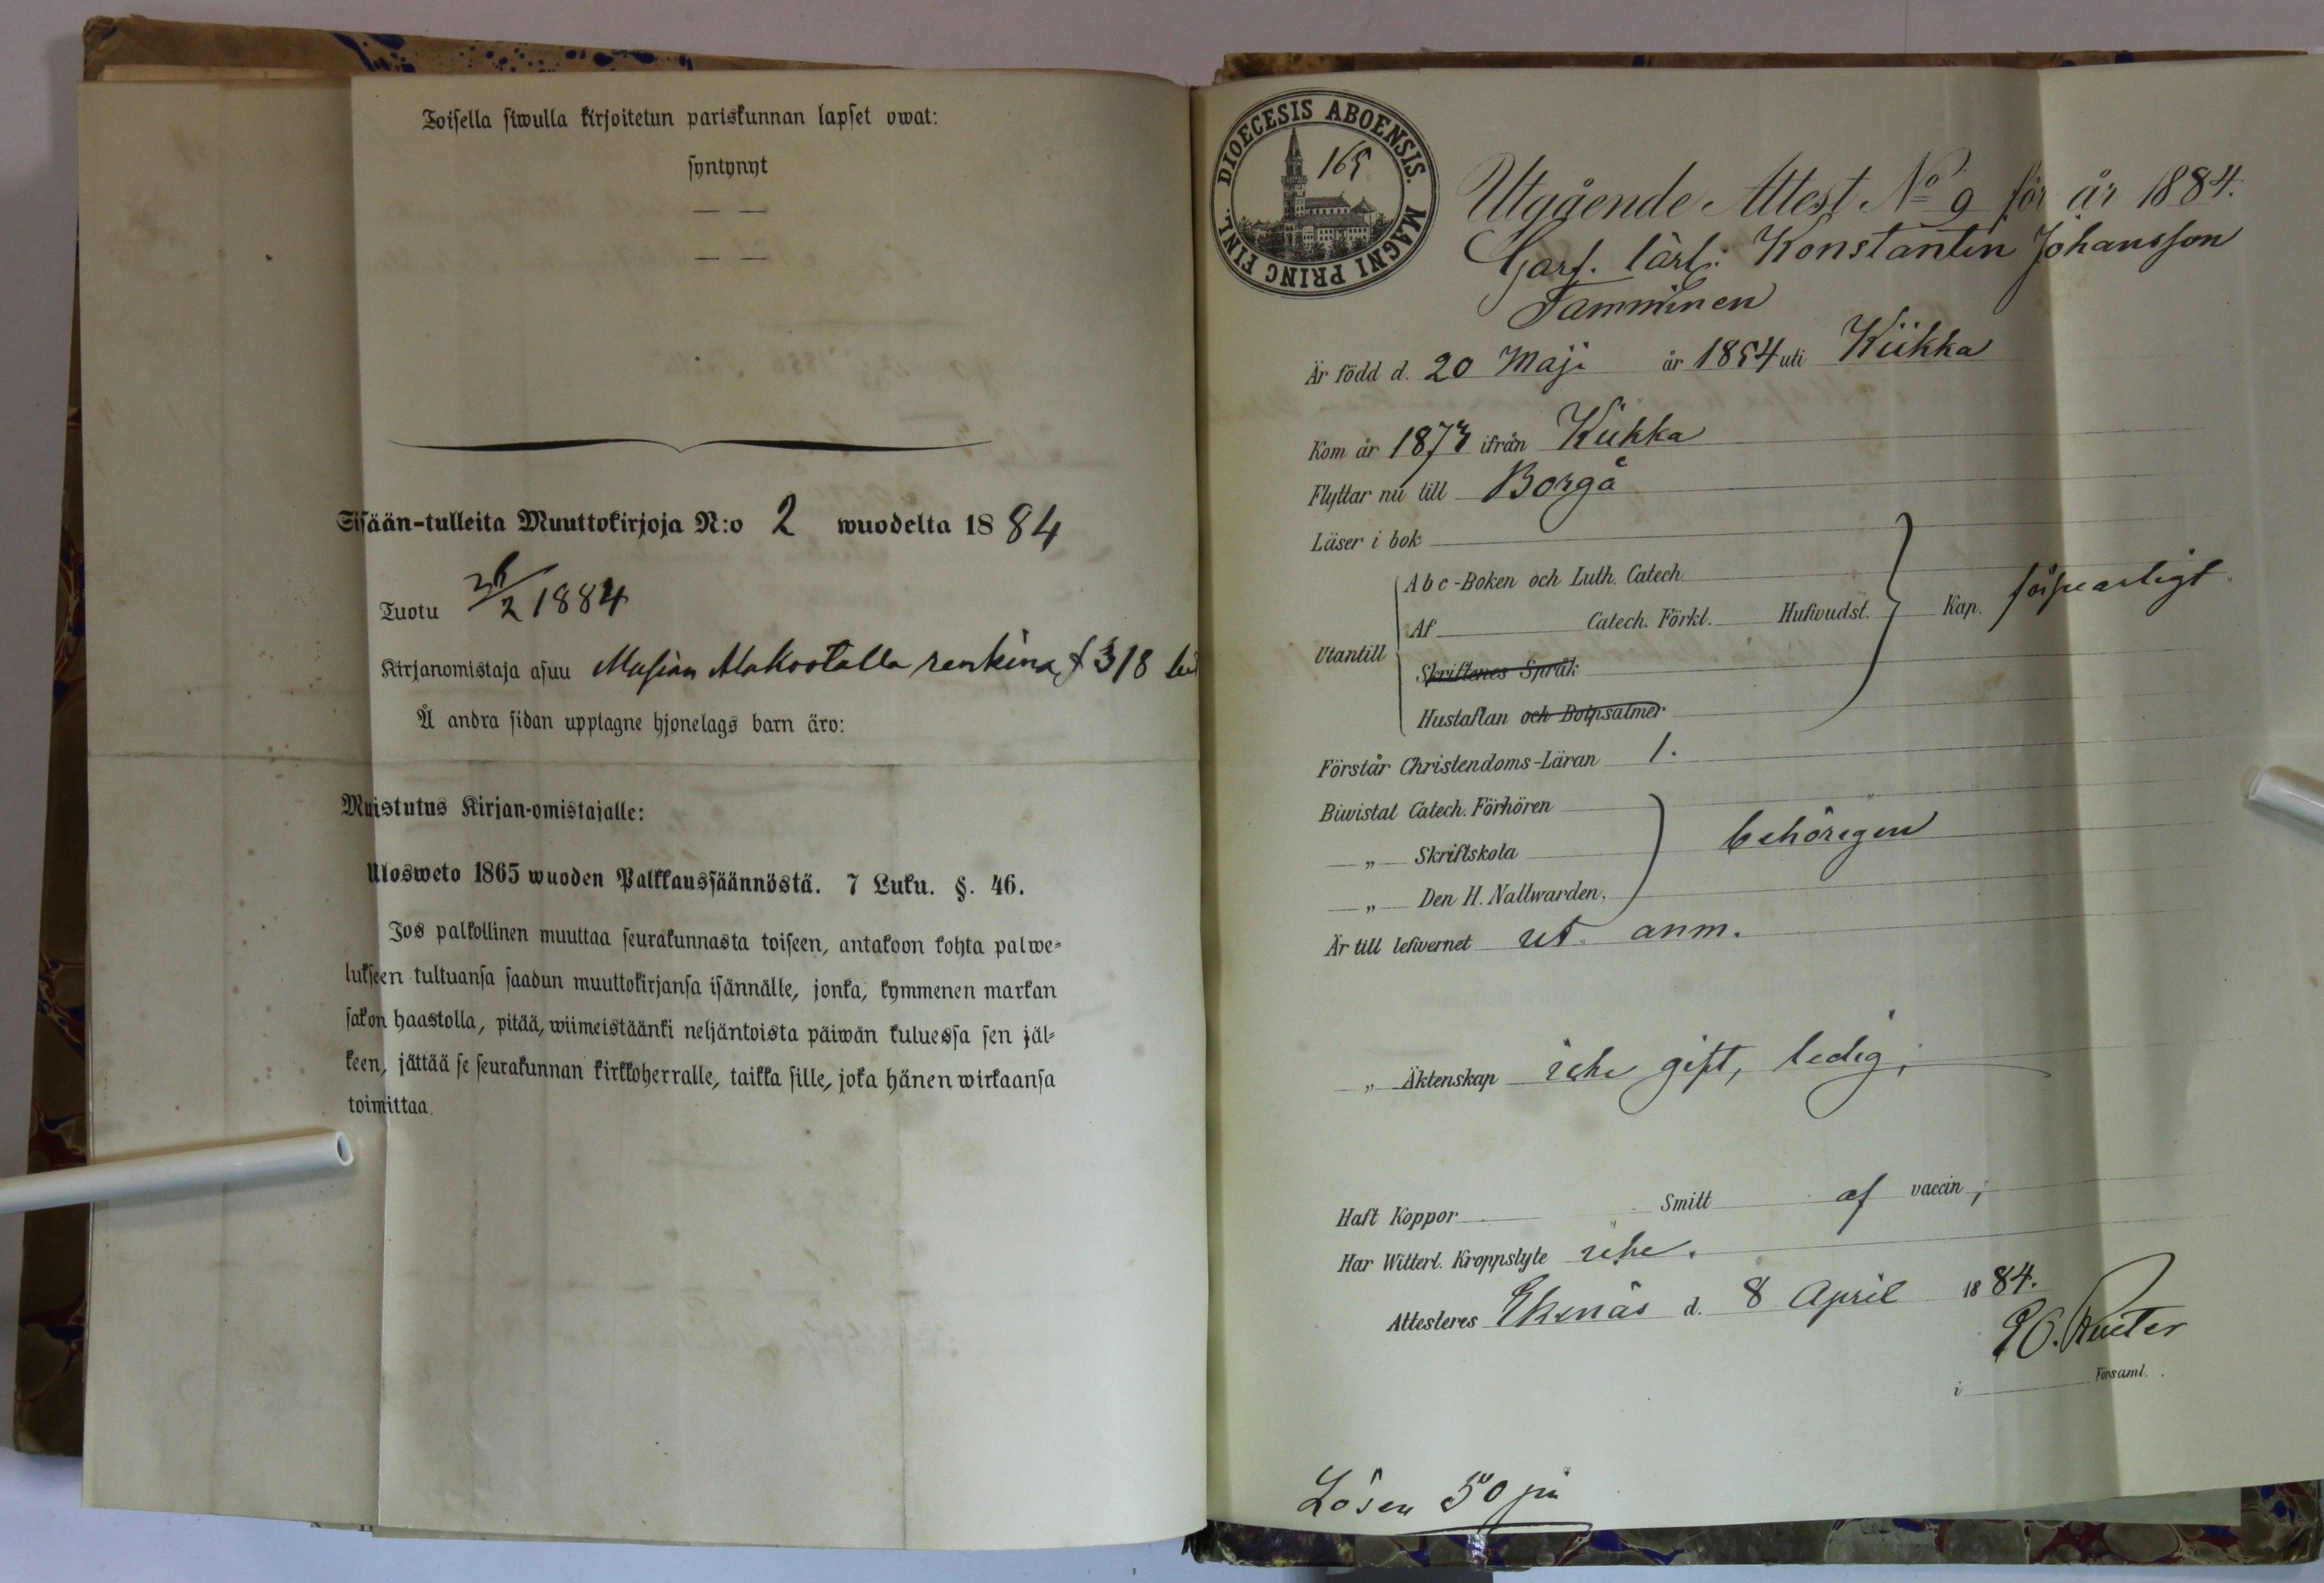 Toisella siwulla kirjoitetun pariskunnan lapset owat:
syntynyt
— —
— —
Sisään-tulleita Muuttokirjoja N:o 2 wuodelta 1884
Tuotu 26/2 1884
Kirjanomistaja asuu Alakootalla renkinä 318
Å andra sidan upptagne hjonelags barn äro:
Muistutus Kirjan-omistajalle:
Ulosweto 1865 wuoden Palkkaussäännöstä. 7 Luku. §. 46.
Jos palkollinen muuttaa seurakunnasta toiseen, antakoon kohta palwe-
lukseen tultuansa saadun muuttokirjansa isännälle, jonka, kymmenen markan
sakon haastolla, pitää, wiimeistäänki neljäntoista päiwän kuluessa sen jäl-
keen, jättää se seurakunnan kirkkoherralle, taikka sille, joka hänen wirkaansa
toimittaa.
DIOECESIS ABOENSIS. MAGNI PRINC FINL.
165
Utgående Attest No 9 för år 1884.
Garf. lärl: Konstantin Johansson
Tamminen
Är född d. 20 Maji år 1854 uti Kiikka
Kom år 1873 ifrån Kiikka
Flyttar nu till Borgå
Läser i bok
Abc-Boken och Luth. Catech.
Utantill Af Catech. Förkl. Hufwudst. Kap. försvarligt
Skriftenes Språk
Hustaflan och Botpsalmer
Förstår Christendoms-Läran 1.
Biwistat Catech. Förhören
— „ — Skriftskola behörigen
— „ — Den H. Nattwarden,
Är till lefwernet ut. anm.
— „ Äktenskap icke gift, ledig;
Haft Koppor Smitt af vaccin,
Har Witterl. Kroppslyte icke.
Attesteres Ekenäs d. 8 April 1884.
Reuter
i Församl.
Lösen 50 pi